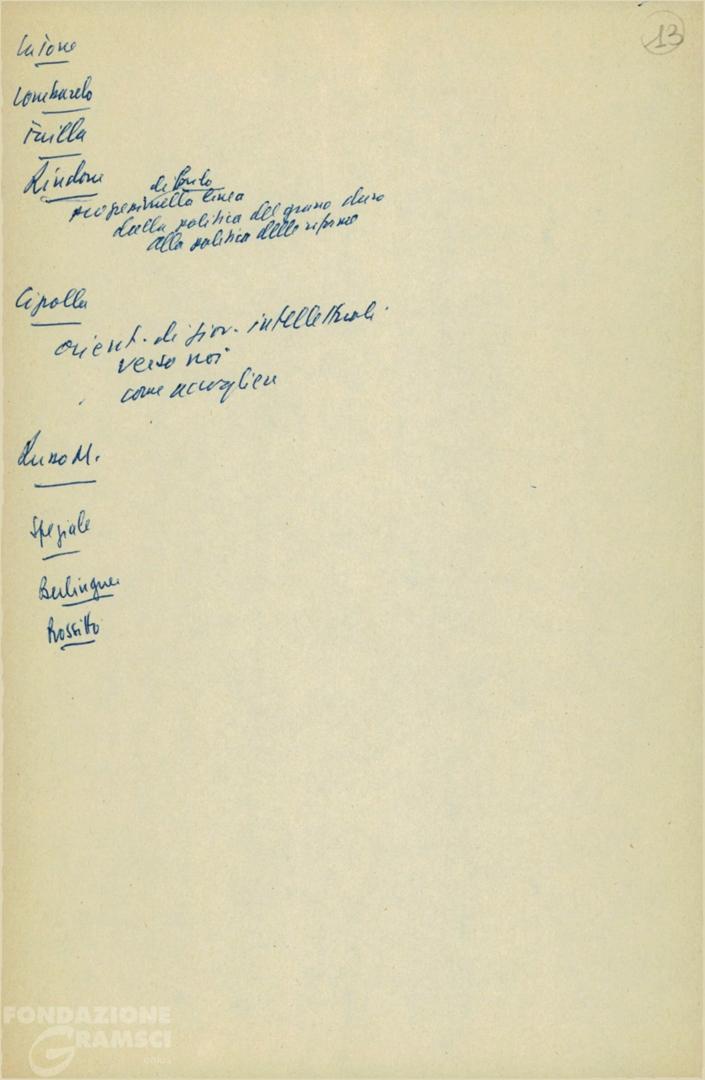 13
Lombardo
Failla
Rindone
dibattito
nella linea
dalla politica del grano duro
alla politica delle riforme
Cipolla
orient. di giov. intellettuali
verso noi
come accogliere
Russo M.
Speziale
Berlinguer
Rossitto
FONDAZIONE
GRAMSCI
onlus